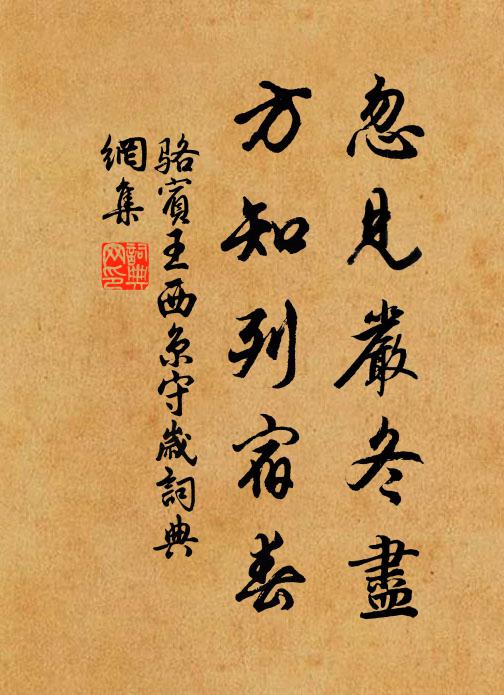 忽見嚴冬盡
方知列宿春
駱賓王西京守歲詞典
網集
詞典網印